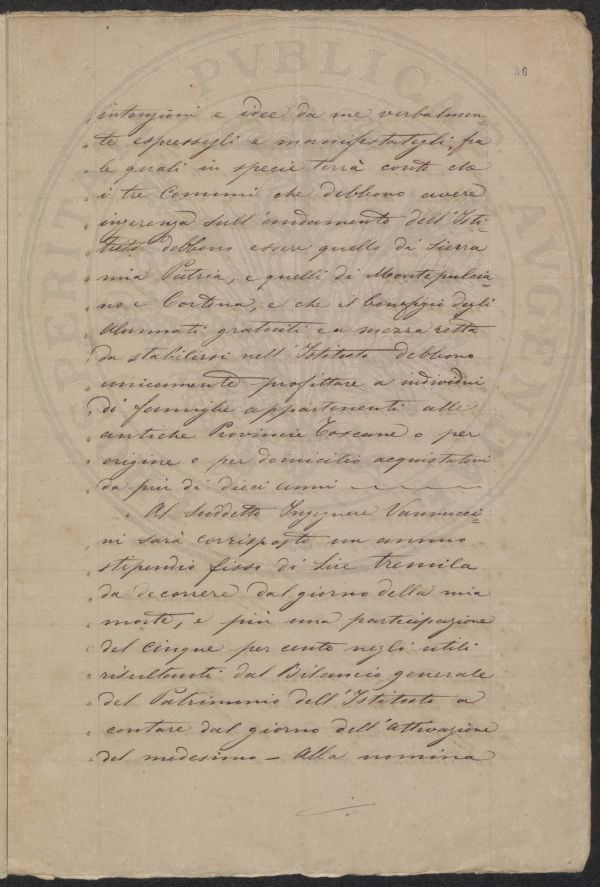 36
" intenzioni e idee da me verbalmen=
" te espressegli e manifestategli, fra
" le quali in specie terrà conto che
" i tre Comuni che debbono avere
" ingerenza sull'andamento dell'Isti=
" tuto debbono essere quello di Sierra
" mia Patria, e quelli di Montepulcia=
" no e Cortona, e che il benefizio degli
" Alunnati gratuiti e a mezza retta
" da stabilirsi nell'Istituto debbono
" unicamente profittare a individui
" di famiglie appartenenti alle
" antiche Provincie Toscane o per
" origine o per domicilio acquistatovi
" da più di dieci anni
" Al suddetto Ingegnere Vannucci=
" ni sarà corrisposto un annuo
" stipendio fisso di Lire tremila
" da decorrere dal giorno della mia
" morte, e più una partecipazione
" del cinque per cento negli utili
" risultanti dal Bilancio generale
" del Patrimonio dell'Istituto a
" contare dal giorno dell'attivazione
" del medesimo – Alla nomina